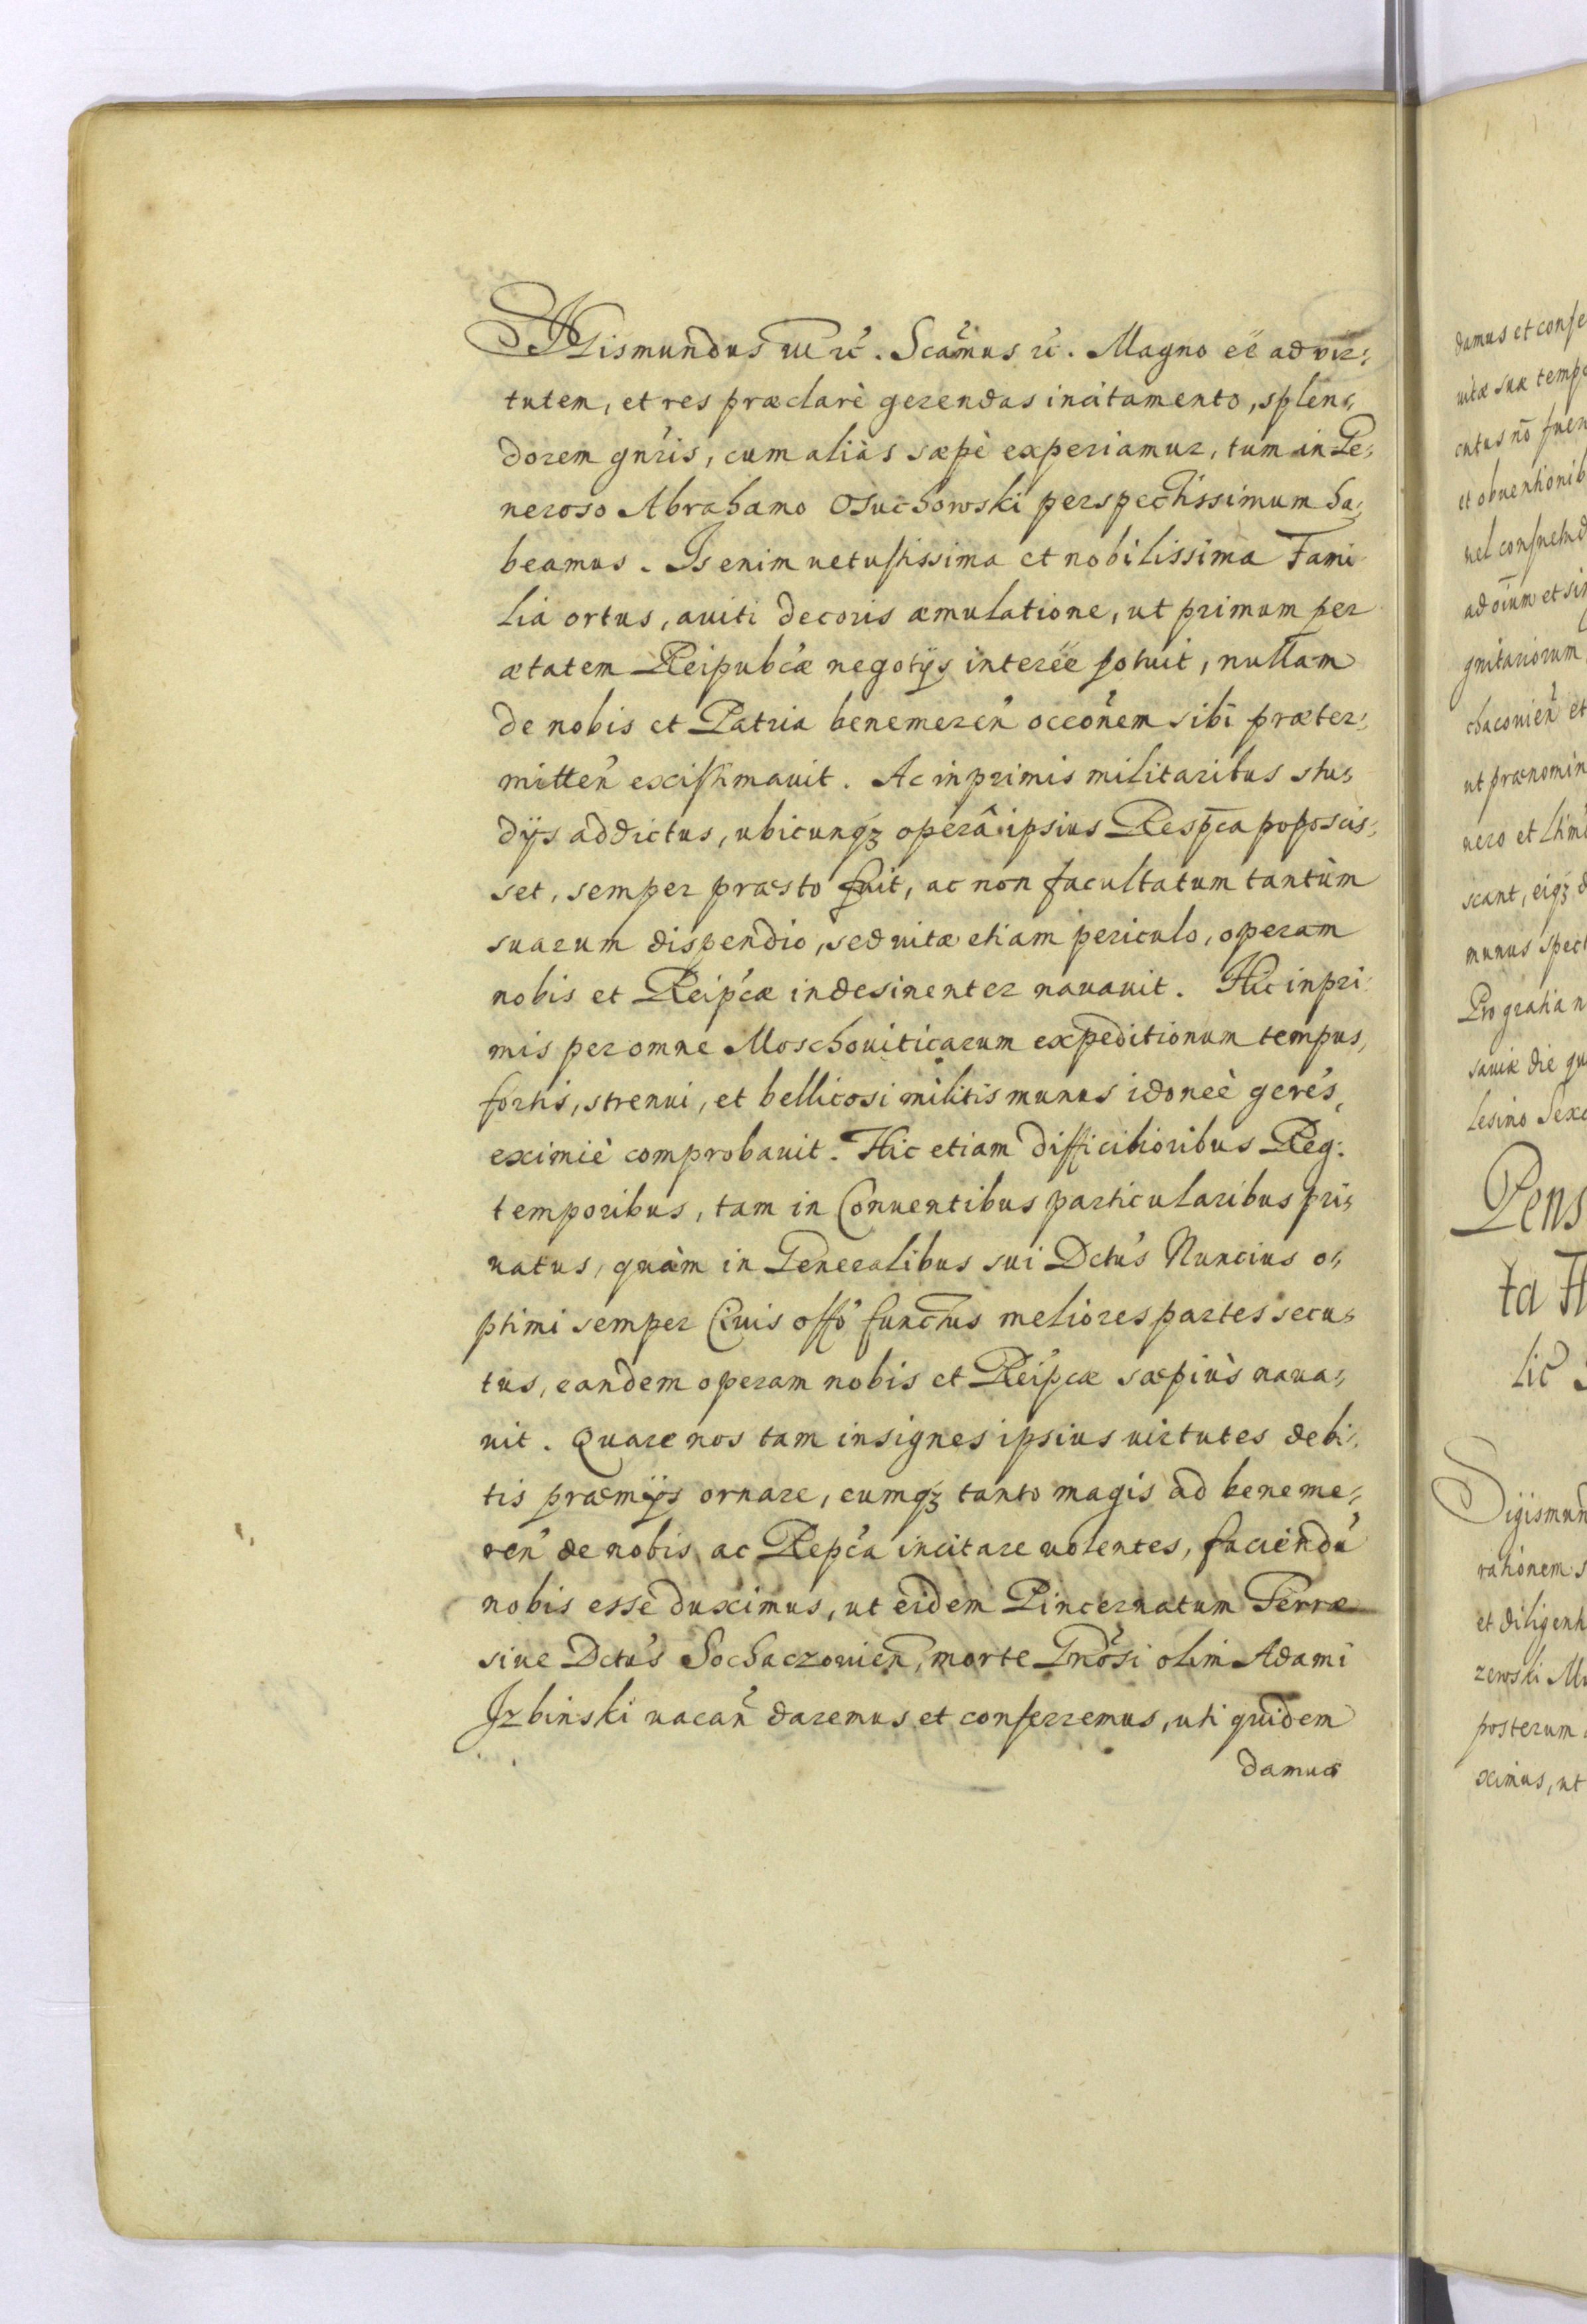 Sigismundus III etc. Scãmus etc. Magno eẽ ad vir:
tutem, et res præclarè gerendas incitamento, splen:
dorem gnris, cum aliàs sæpè experiamur, tum in Ge:
neroso Abrahamo Osuchowski perspectissimum ha:
beamus. Is enim uetustissima et nobilissima Fami
lia ortus, auiti decoris æmulatione, ut primum per
ætatem Reipubcæ negotijs intereẽ potuit, nullam
de nobis et Patria benemereñ occõnem sibi præter:
mitteñ existimauit. Ac inprimis militaribus stu:
dijs addictus, ubicunqz operâ ipsius Respca poposcis:
set, semper præsto fuit, ac non facultatum tantùm
suarum dispendio, sed uitæ etiam periculo, operam
nobis et Reipcæ indesinenter nauauit. Hic inpri
mis per omne Moschouiticarum expeditionum tempus,
fortis, strenui, et bellicosi militis munus idoneè gerés,
eximiè comprobauit. Hic etiam difficilioribus Reg:
temporibus, tam in Conuentibus particularibus pri:
uatus, quàm in Generalibus sui Dctus Nuncius o:
ptimi semper Ciuis offo functus meliores partes secu:
tus, eandem operam nobis et Reipcæ sæpiùs naua:
uit. Quare nos tam insignes ipsius uirtutes debi:
tis præmijs ornare, eumqz tanto magis ad beneme:
reñ de nobis ac Repca incitare uolentes, faciendũ
nobis esse duximus, ut eidem Pincernatum Terræ
siue Dctus Sochaczouieñ, morte Gnosi olim Adami
Izbinski uacañ daremus et conferremus, uti quidem
damus
damus et confe
uitæ suæ tempo
cutus nõ fuer
et obuentionib
uel consuetud
ad oium et sin
gnitariorum
chacouieñ et
ut prænomin
uero et Ltimo
scant, eiqz d
munus spect
Pro gratia n
sauiæ die qu
lesimo Sexc
Pens
ta H
lic S
Sigismun
rationem s
et diligent
zewski Mu
posterum
ximus, ut